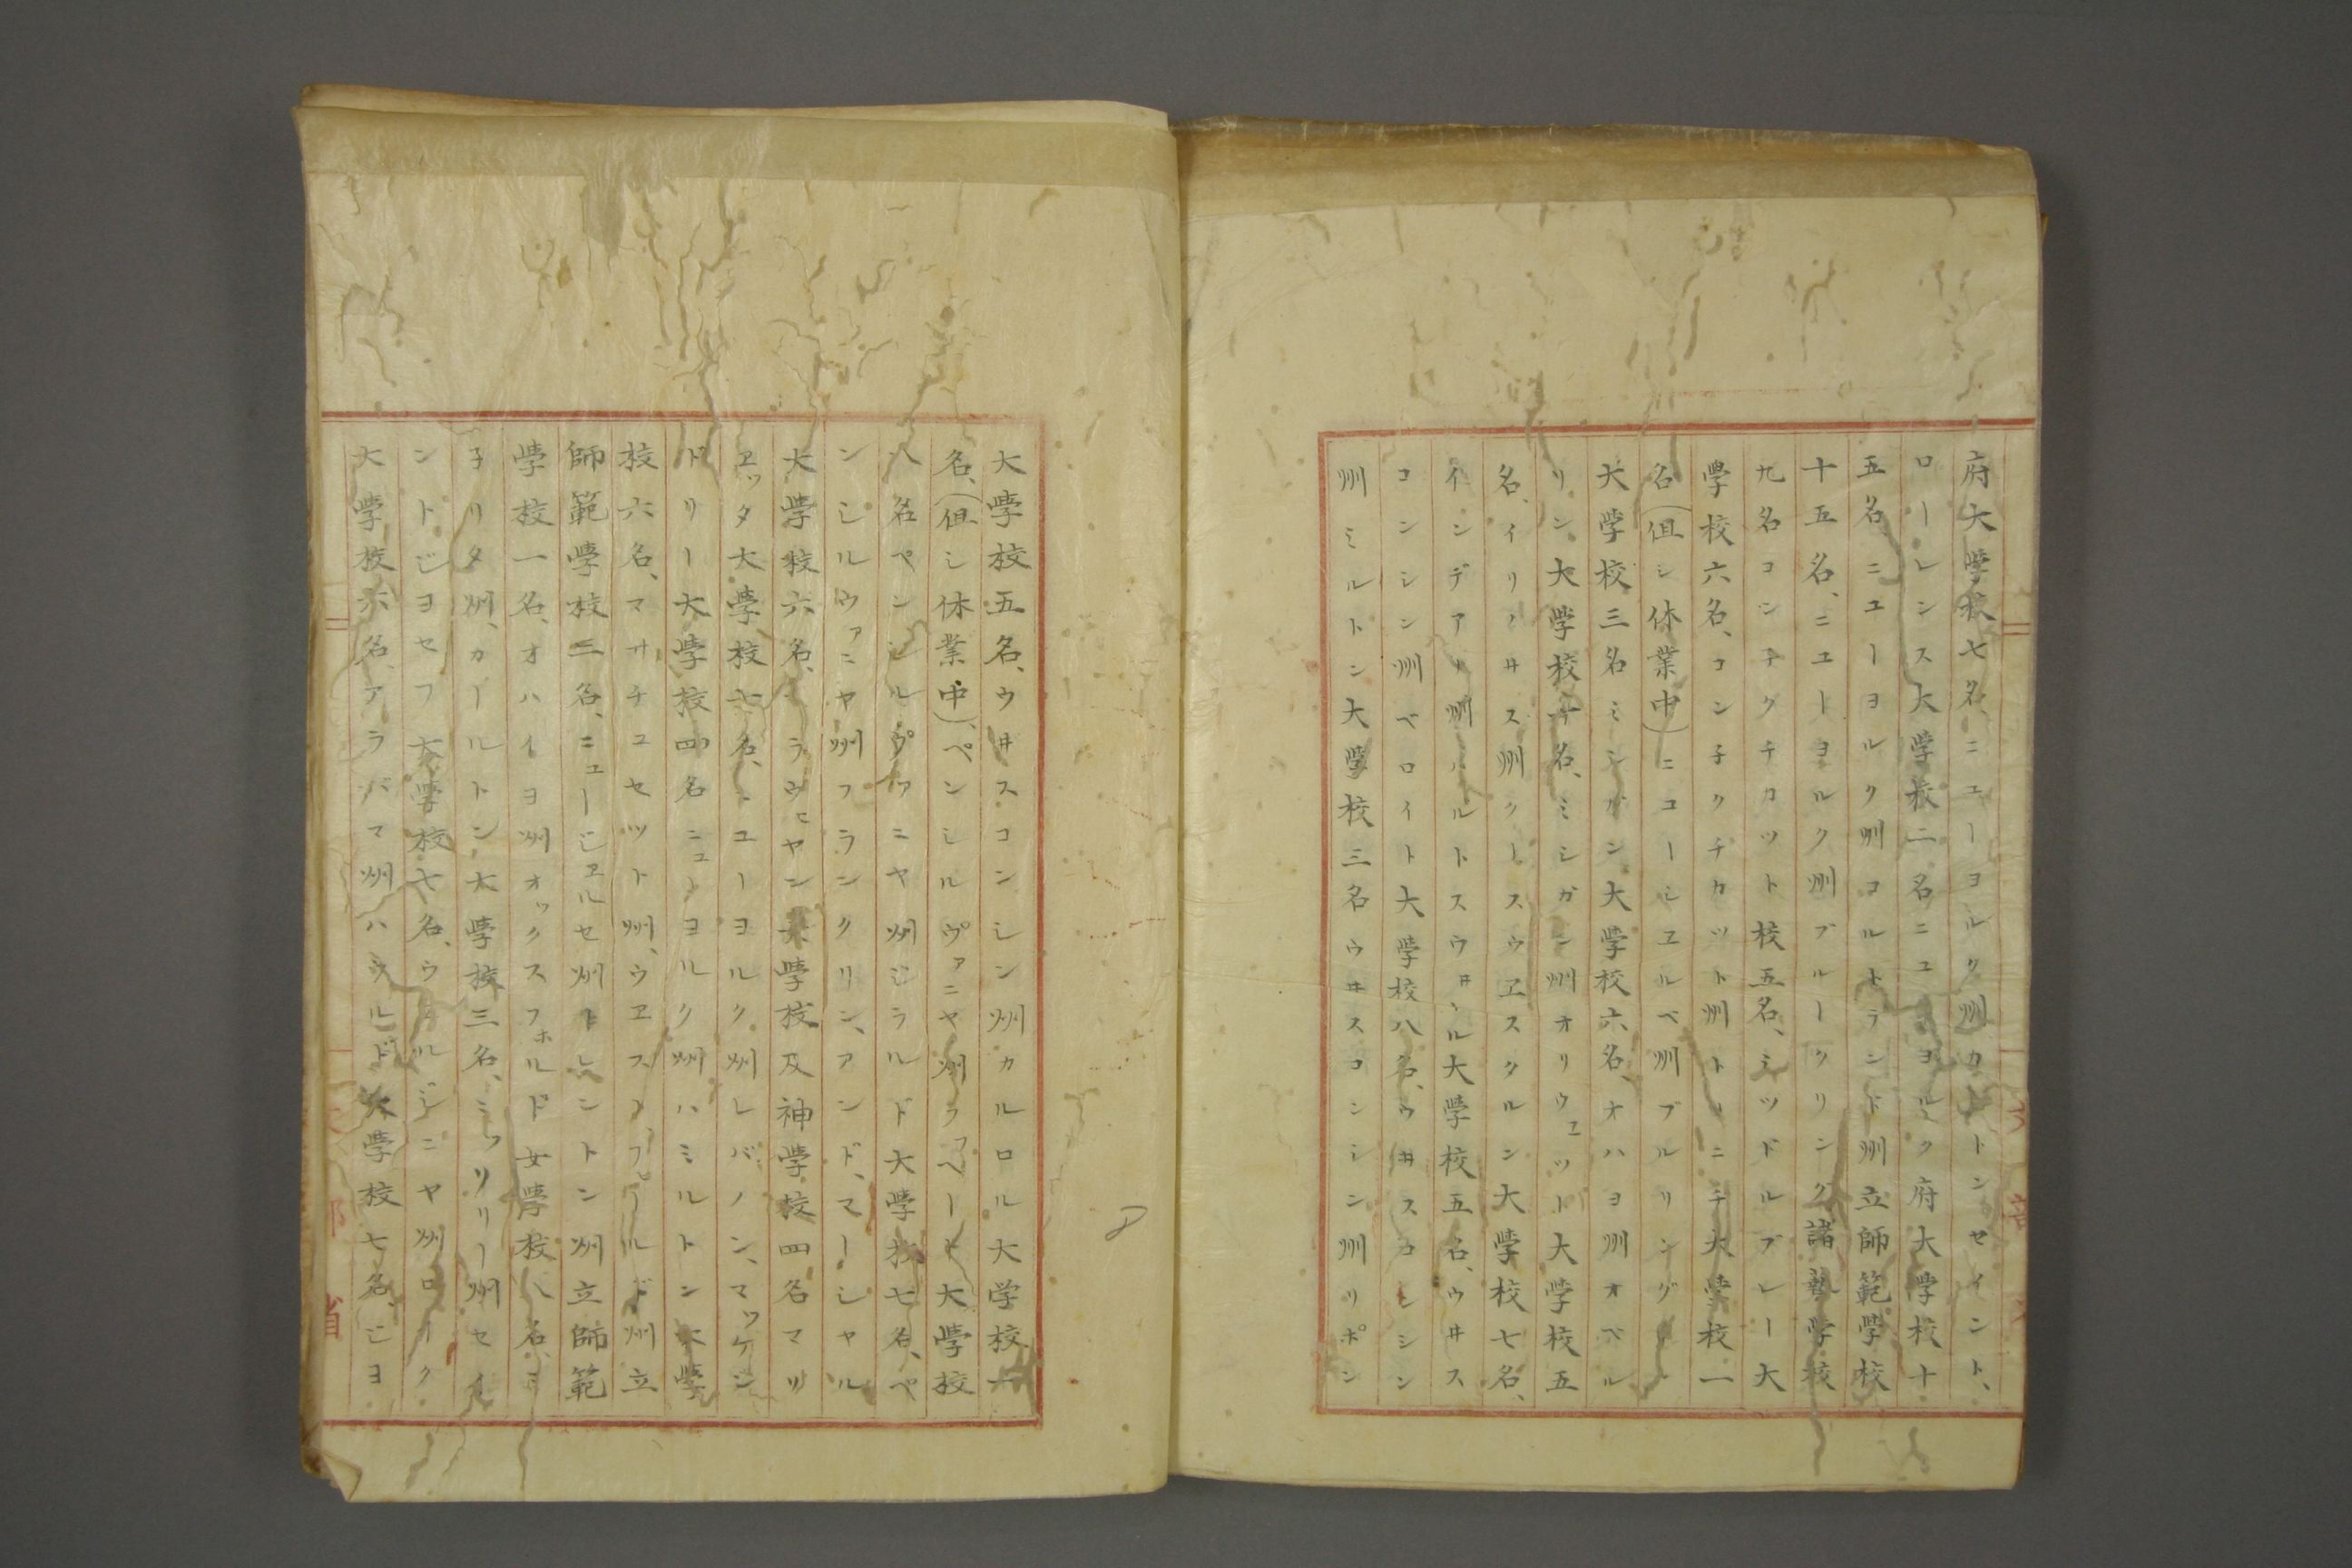 府大学校七名、ニユーヨルク州カントンセイント、
ローレンス大学校二名ニユーヨルク府大学校十
五名ニユーヨルク州コルトランド州立師範學校
十五名、ニユーヨルク州ブルークリング諸藝学校
九名コン子クチカツト校五名、ミツドルブレー大
學校六名、コン子クチカツト州トリニチ大学校一
名(但シ休業中)ニコーシヱルベ州ブルリングトン
大学校三名ミシガン大學校六名、オハヨ州オベル
リン大學校十名、ミシガン州オリウヱツト大学校五
名、イリノ井ス州クースウヱスタルン大学校七名、
インデアナ州ハルトスウ井ル大學校五名、ウ井ス
コンシン州ベロイト大學校八名、ウ井スコンシン
州ミルトン大學校三名ウ井スコンシン州リポン
大學校五名、ウ井スコンシン州カルロル大学校一
名、(但シ休業中)、ペンシルヴァニヤ州ラフヘート大學校
八名ペンシルヴァニヤ州ジラルド大學校七名、ペ
ンシルヴァニヤ州フランクリン、アンド、マーシヤル
大學校六名、モラヴヒヤン大學校及神学校四名マリ
ヱッタ大學校七名、ニユーヨルク州レバノン、マツケン
ドリー大學校四名ニューヨルク州ハミルトン大學
校六名、マサチユセツト州、ウヱストフヒールド州立
師範學校三名、ニュージヱルセ州トレントン州立師範
學校一名、オハイヨ州オックスフホルド女學校八名、ミ
子リタ州、カールトン大學校三名、ミツリリー州セイ
ントジヨセフ大學校七名、ウヱルジニヤ州ローク
大學校六名、アラバマ州ハウルド大學校七名、ジヨ